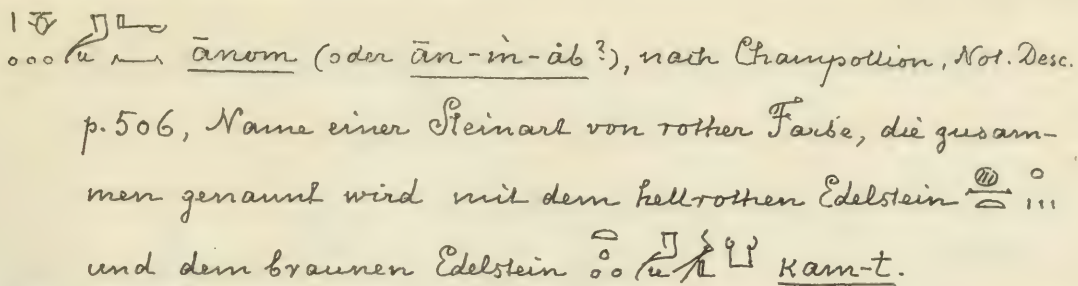 ānom (oder ān-m̀-ȧb?), nach Champollion, Not. Desc.
p. 506, Name einer Steinart von rother Farbe, die zusam-
men genannt wird mit dem hellrothen Edelstein
und dem braunen Edelstein kam-t.